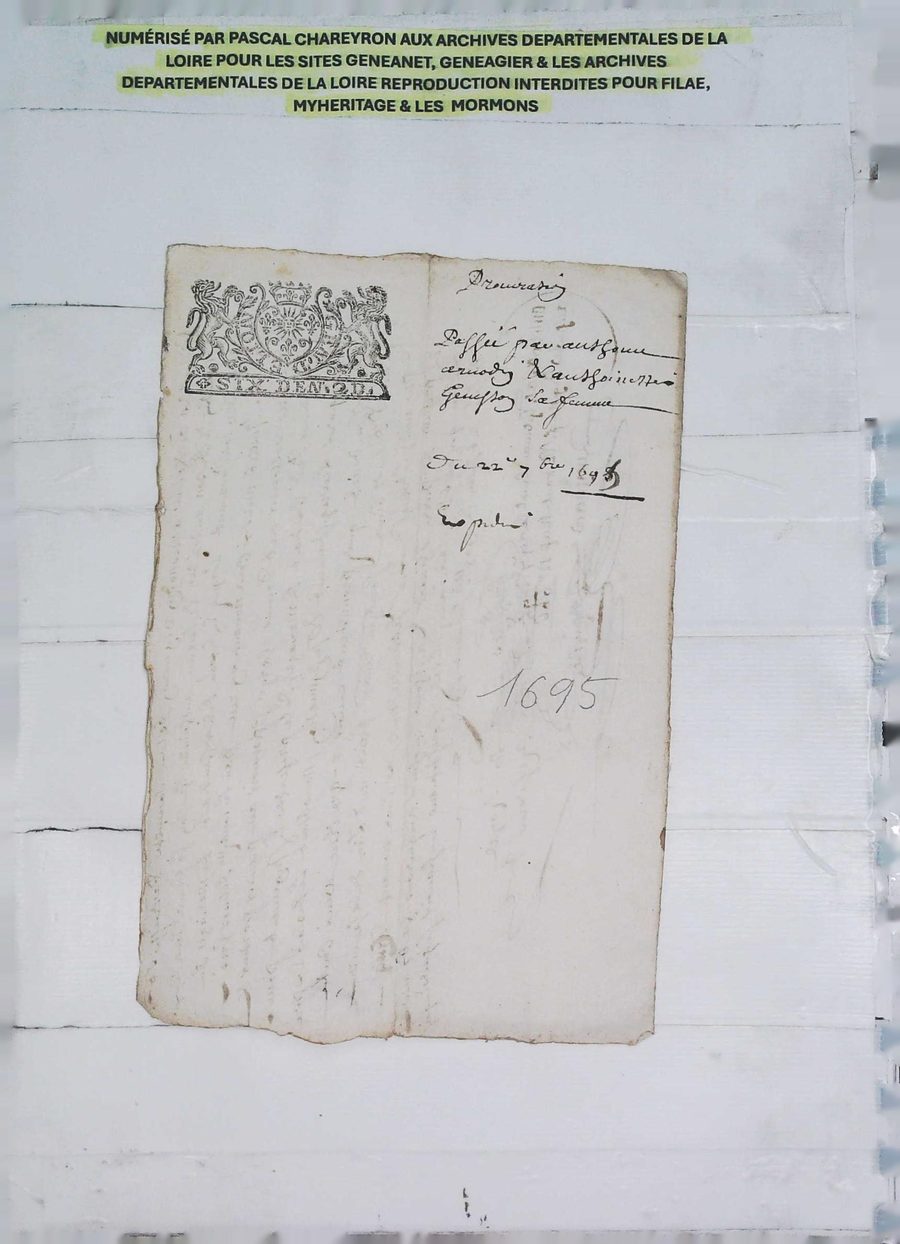 NUMÉRISÉ PAR PASCAL CHAREYRON AUX ARCHIVES DEPARTEMENTALES DE LA
LOIRE POUR LES SITES GENEANET, GENEAGIER & LES ARCHIVES
DEPARTEMENTALES DE LA LOIRE REPRODUCTION INTERDITES POUR FILAE,
MYHERITAGE & LES MORMONS
Procuration
LYON GENERALITE
SIX DEN. 2 D.
Passée par anthoine
arnodin & anthoinette
sa femme
Du 22e 7bre 1695
Expedié
1695